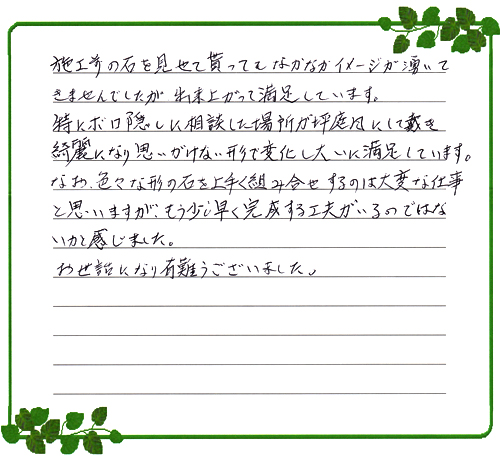 施工前の石を見せて貰ってもなかなかイメージが湧いて
きませんでしたが出来上がって満足しています。
特にボロ隠しに相談した場所が坪庭風にして戴き
綺麗になり思いがけない形で変化し大いに満足しています。
なお、色々な形の石を上手く組み合せするのは大変な仕事
と思いますが、もう少し早く完成する工夫がいるのではな
いかと感じました。
お世話になり有難うございました。